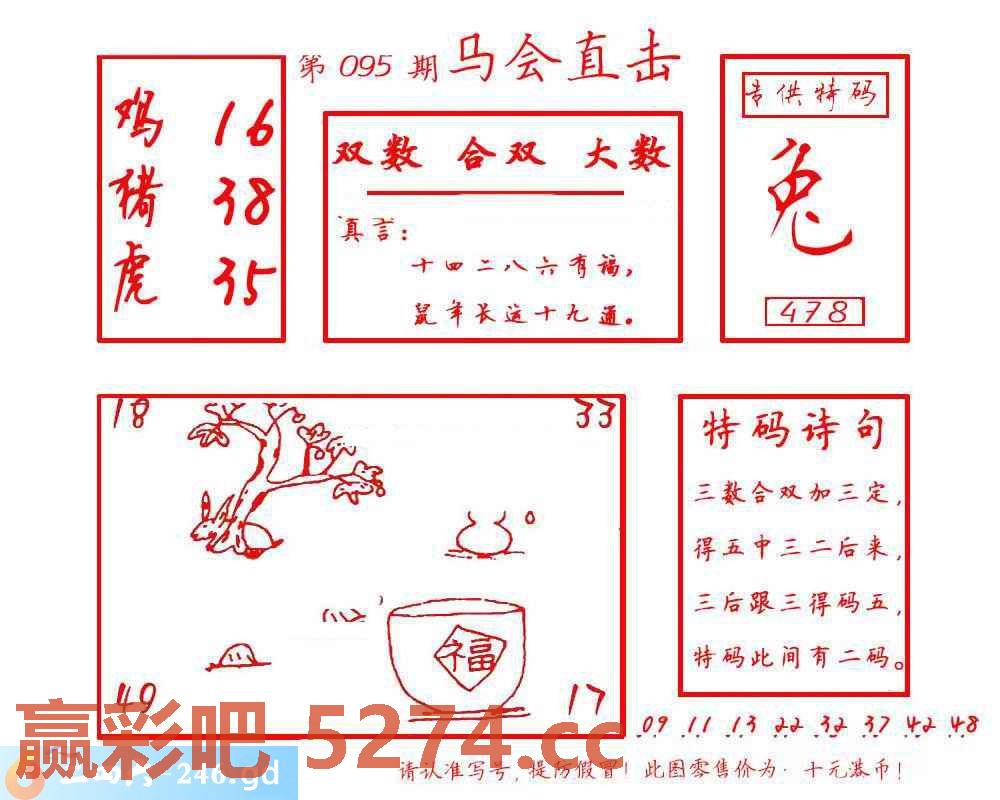 第 095 期 马会直击
鸡 16
猪 38
虎 35
双数 合双 大数
真言:
十四二八六有福,
鼠年长运十九通。
专供特码
兔
478
18
33
福
49
17
特码诗句
三数合双加三定,
得五中三二后来,
三后跟三得码五,
特码此间有二码。
09 11 13 22 32 37 42 48
赢彩吧 5274.cc
-246.gd
请认准写号,提防假冒!此图零售价为:十元港币!